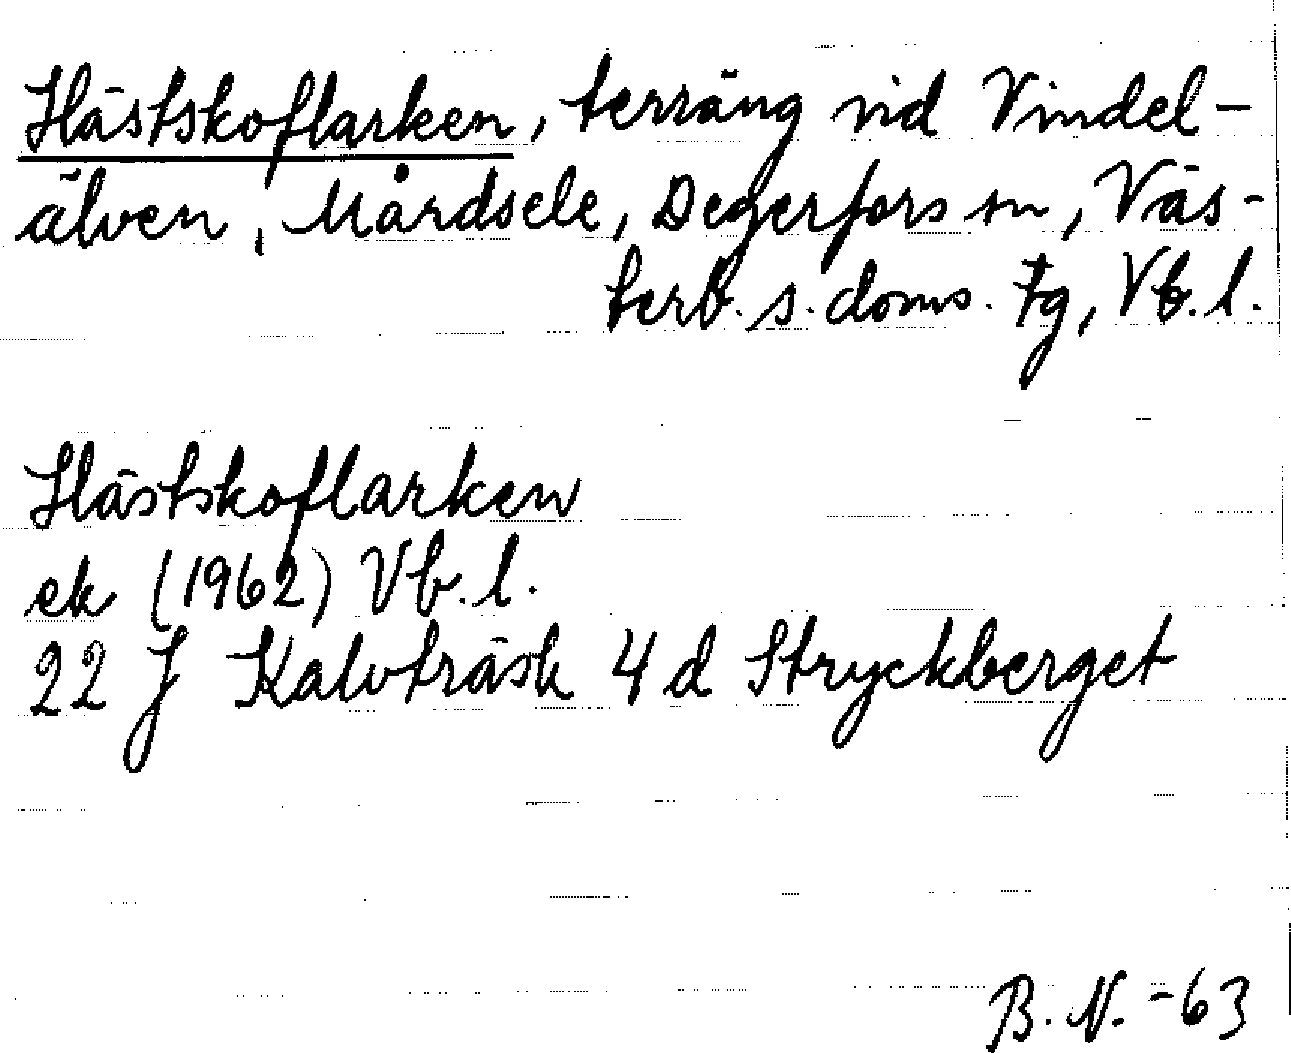 Hästskoflarken, terräng vid Vindel-
älven, Mårdsele, Degerfors sn, Väs-
terb. s. doms. tg, Vb. l.
Hästskoflarken
ek (1962) Vb. l.
22 J Kalvträsk 4 d Stryckberget
B. N. -63